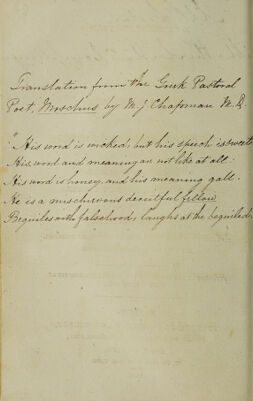 Translation from the Greek Pastoral
Poet, Moschus by M. J. Chapman M.D.
"His word is wicked, but his speech is sweet
His word and meaning are not like at all:
His word is honey, and his meaning gall.
He is a mischievous deceitful fellow
Beguiles with falsehood, laughs at the beguiled.